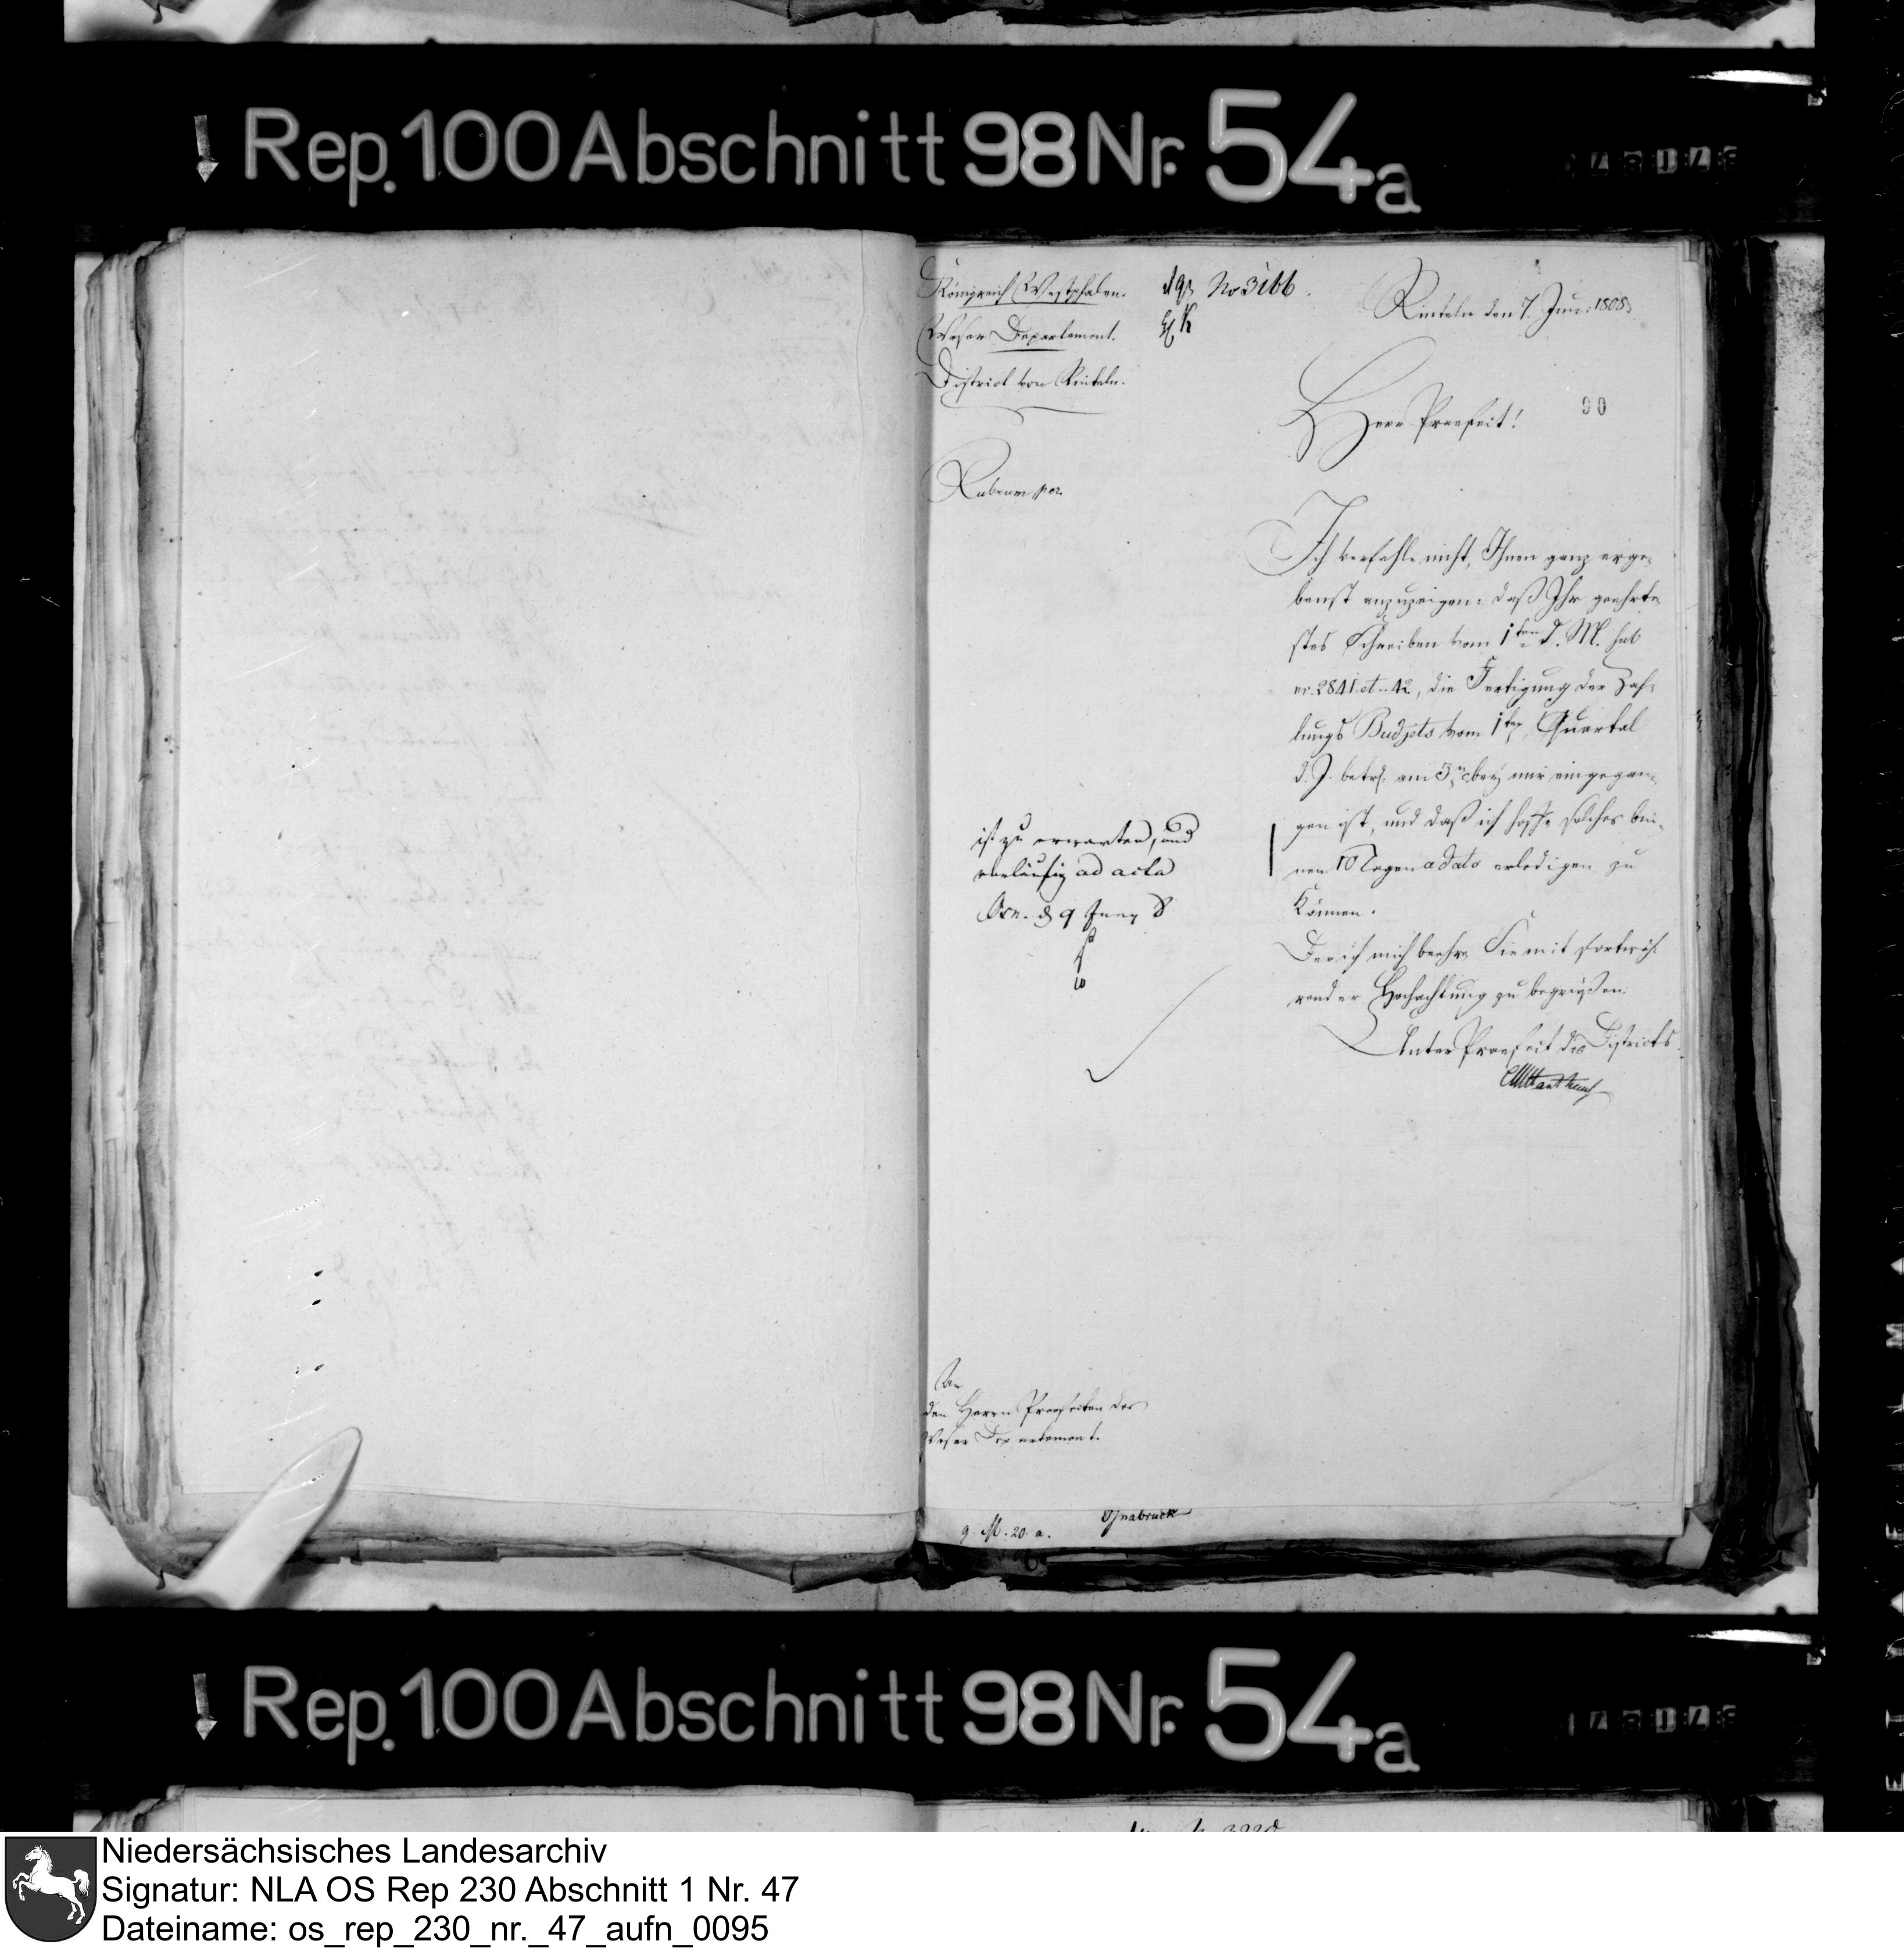 Rep. 100 Abschnitt 98 Nr. 54a
Königreich Westphalen.
Weser Departement.
District von Rinteln.
No 3166.
Rinteln den 7. Jun: 1808.
90
Herr Praefect!
Ich verfehle nicht, Ihnen ganz erge-
benst anzuzeigen: daß Ihr geehrte-
stes Schreiben vom 1ten d. M. sub
nr. 2841. et. 42, die Fertigung der Zah-
lungs Budjets vom 1ten Quartal
d. J. betrf. am 3n bey mir eingegan-
gen ist, und daß ich hoffe solches bin-
nen 10 Tagen a dato erledigen zu
können.
Der ich mich beehre Sie mit fortwäh-
render Hochachtung zu begrüßen.
Unter Praefect des Districts
ist zu erwarten, und
vorläufig ad acta
Osn. d 9 Juny 8
An
den Herrn Praefecten des
Weser Departement.
Osnabruck
9. M. 20. a.
Rep. 100 Abschnitt 98 Nr. 54a
Niedersächsisches Landesarchiv
Signatur: NLA OS Rep 230 Abschnitt 1 Nr. 47
Dateiname: os_rep_230_nr._47_aufn_0095